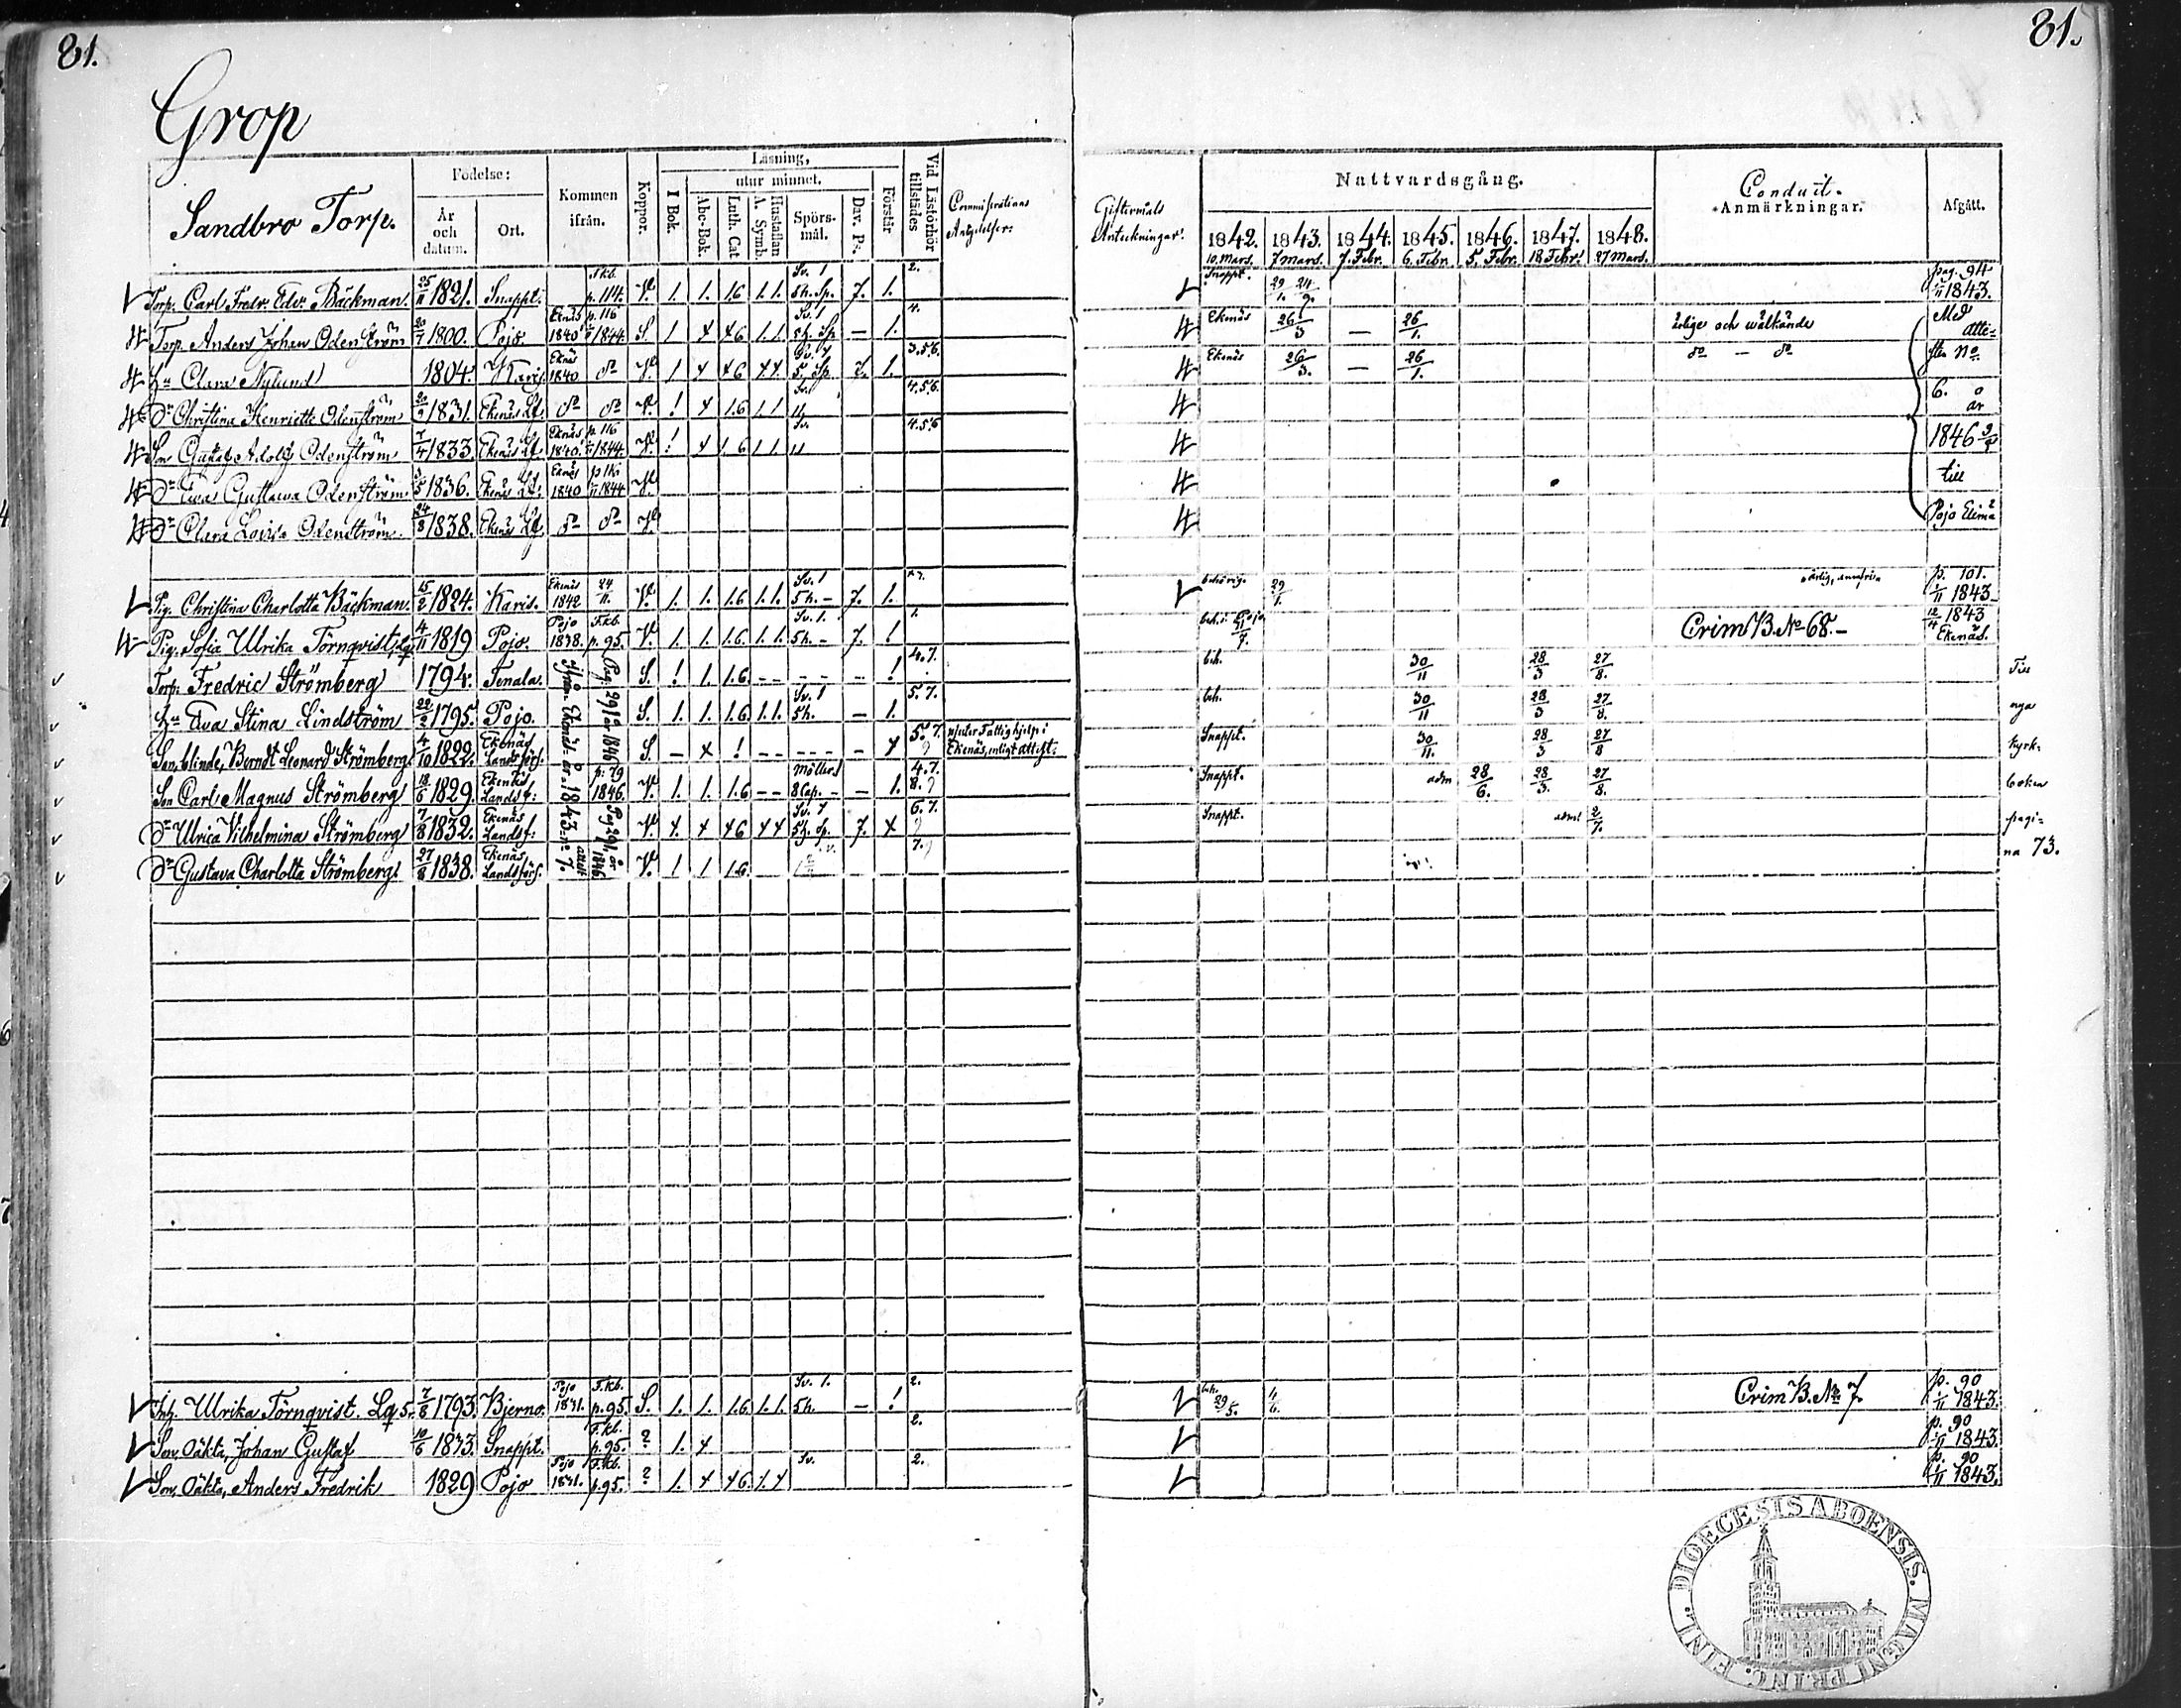 81. 81.
Grop
Sandbro Torp.
Födelse: År och datum. Ort. Kommen ifrån. Koppor. Läsning, I Bok. utur minnet. Abc-Bok. Luth. Cat. Hustaflan A. Symb. Spörsmål. Dav. Ps. Förstår Vid Läsförhör tillstädes Giftermåls Anteckningar. Nattvardsgång. Conduit. Anmärkningar. Afgått.
1842. 1843. 1844. 1845. 1846. 1847. 1848.
10 Mars. 7 Mars. 7. Febr. 6. Febr. 5. Febr. 18 Febr. 27 Mars.
Torp. Carl Fredr. Edv. Bäckman. 25/11 1821. Snappt. F.kb. p. 114. V. 1. 1. 1.6 1.1. Sv. 1 5h. Sp. 7. 1. 2. Snappt. pag. 94 1/11 1843.
Torp. Anders Johan Odenström 20/7 1800. Pojo. Ekenäs 1840 p. 116 1844. S. Sv. 1 5h. Sp — 1. 4. Ekenäs 26/3 — 26/1. ärlige och wälkände Med atte=
Hu Clara Nylund 1804. Karis. Ekenäs 1840 do V. 7. 1. 3.5.6. Ekenäs 26/3. — 26/1. do — do sten No
Dr Christina Henriette Odenström 20/9 1831. Ekenäs Lf. do do V. 4.5.6. 6. år
Son Gustaf Adolf Odenström 7/4 1833. Ekenäs Lf. Ekenäs 1840. p. 116 1844. V. 4.5.6 1846
Dr Ewa Gustawa Odenström 1836. Ekenäs Lf. Ekenäs 1840 p 116 1844 V. till
Dr Clara Lovisa Odenström. 24/8 1838. Ekenäs Lf. do do V. Pojo
Pig. Christina Charlotta Bäckman. 15/2 1824. Karis. Ekenäs 1842 24/11. V. 1. 1. 1.6 1.1. Sv. 1 5h. - 7. 1. behörig. 29/1. p. 101. 1/11 1843
Pig. Sofia Ulrika Törnqvist, 4/11 1819 Pojo. Pojo 1838. F.kb. p. 95. V. 1. 1. 1.6. 1.1. Sv. 1. 5h. - 7. ! 1. Crim B. No 68. 12/4 1843 Ekenäs.
Torp. Fredric Strömberg 1794. Tenala. S. ! 1. 1.6 - - - - ! 4.7. beh. 30/11 28/3 27/8. Till
Hu Eva Stina Lindström 22/2 1795. Pojo. S. 1. 1. 1.6 1.1. Sv. 1 5h. — 1. 5.7. beh. 30/11 28/3 27/8. nya
Son, blinde, Berndt Leonard Strömberg 4/10 1822. Ekenäs Landsförs. S. — x ! 5.7. njuter Fattighjelp i Ekenäs, enligt attest. Snappt. 30/11. 28/3 27/8 kyrk-
Son Carl Magnus Strömberg 18/6 1829. Ekenäs Landsf: p. 79 1846. V. 1. 1. 1.6 - - Möller 8 Cap. - — 1. 4.7. 8. Snappt. adm 28/6. 28/3. 27/8. boken
Dr Ulrica Vilhelmina Strömberg 7/8 1832. Ekenäs Landsf: V. Sv. 1 5h. Sp. 7. x 6.7. Snappt. adm 2/7. pagi=
Dr Gustava Charlotta Strömberg 27/8 1838. Ekenäs Landsförs. V. 1 1 1.6 7. na 73.
Från Ekenäs år 1843 attest no 7. Pag. 291 år 1846 Pag 291, år 1846
Inh. Ulrika Törnqvist. Lq 5. 7/8 1793. Bjerno. Pojo 1831. F.kb. p. 95. S. 1. 1. 1.6 1.1. Sv. 1. 5h. — ! 2. beh. 29/5. Crim B. No 7. p. 90 1/11 1843.
Son, Oäkta, Johan Gustaf 10/6 1833. Snappt. F.kb. p. 95. ? 1. x 2. p. 90 1/11 1843.
Son, Oäkta, Anders Fredrik 1829 Pojo Pojo 1831. F.kb. p. 95. ? Sv. 2. p. 90 1/11 1843.
DIOECESIS ABOENSIS. MAGNI PRINC. FINL.